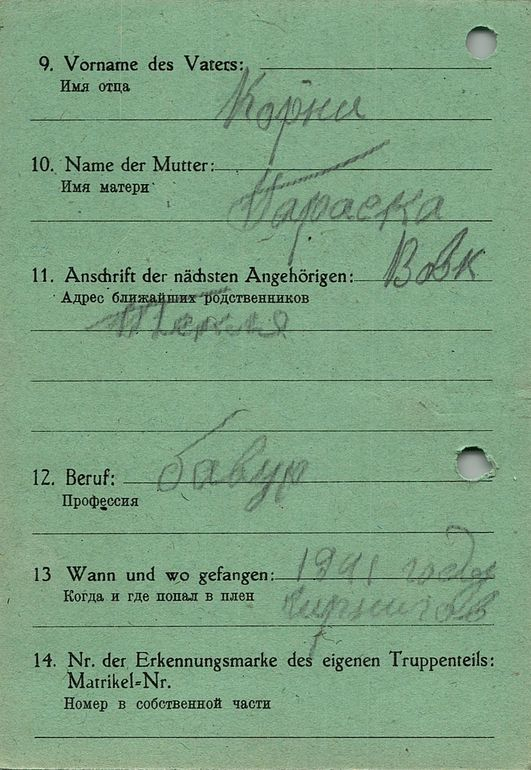 9. Vorname des Vaters:
Имя отца
Корни
10. Name der Mutter:
Имя матери
Параска
11. Anschrift der nächsten Angehörigen: Вовк
Адрес ближайших родственников
Текля
12. Beruf:
Профессия
13 Wann und wo gefangen: 1941 году
Когда и где попал в плен
14. Nr. der Erkennungsmarke des eigenen Truppenteils:
Matrikel-Nr.
Номер в собственной части